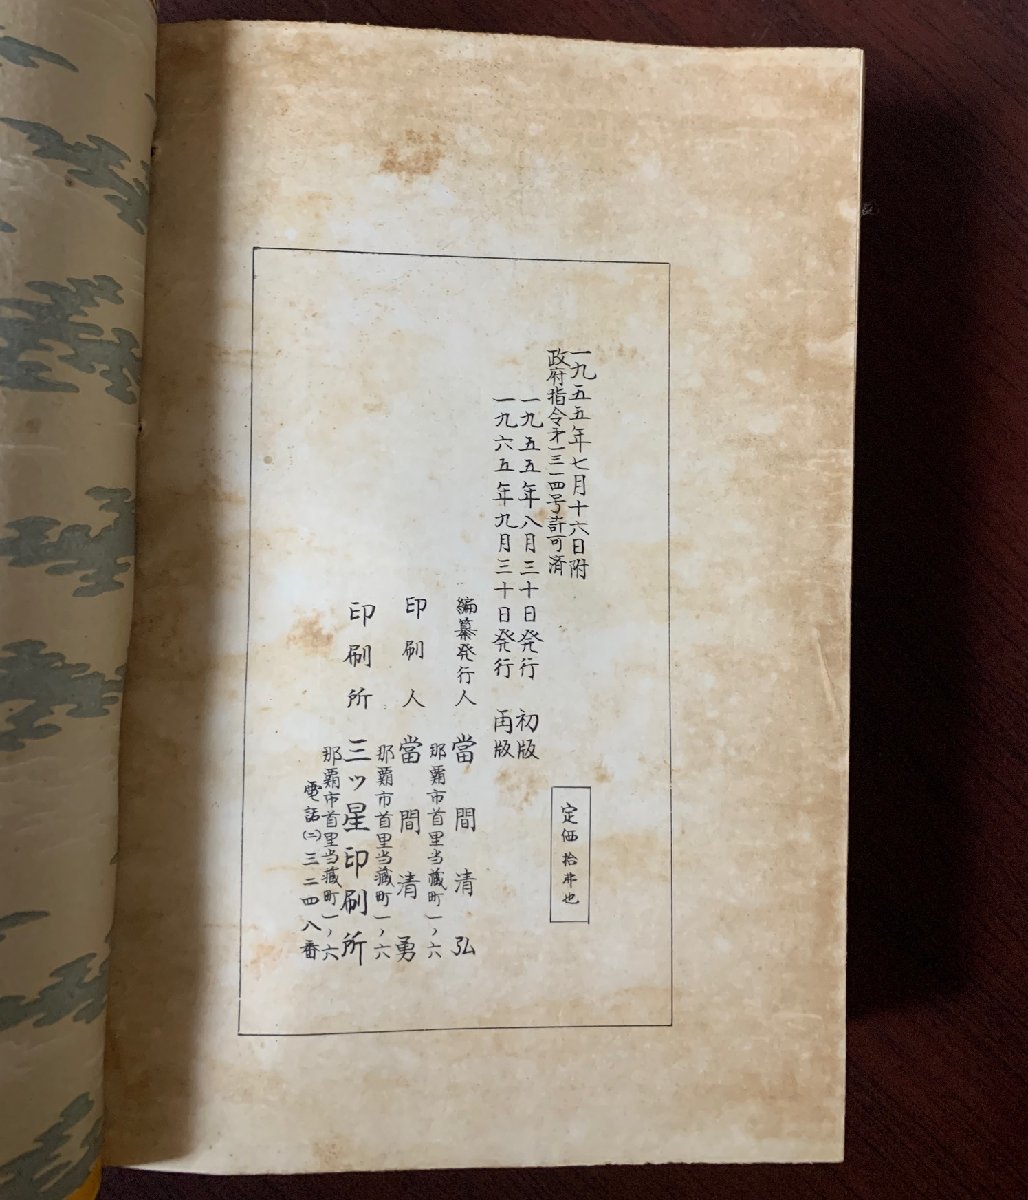 一九五五年七月十六日附
政府指令才一三一四号許可済
一九五五年八月三十日発行 初版
一九六五年九月三十日発行 再版
定価 拾弗也
編纂発行人 當間清弘
那覇市首里当蔵町一ノ六
印刷人 當間清勇
那覇市首里当蔵町一ノ六
印刷所 三ツ星印刷所
那覇市首里当蔵町一ノ六
電話(二)三二四八番